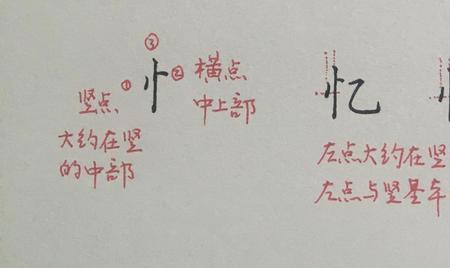 ③
忄
竖点 ①
② 横点
大约在竖
中上部
的中部
忆
左点大约在竖
左点与竖基本